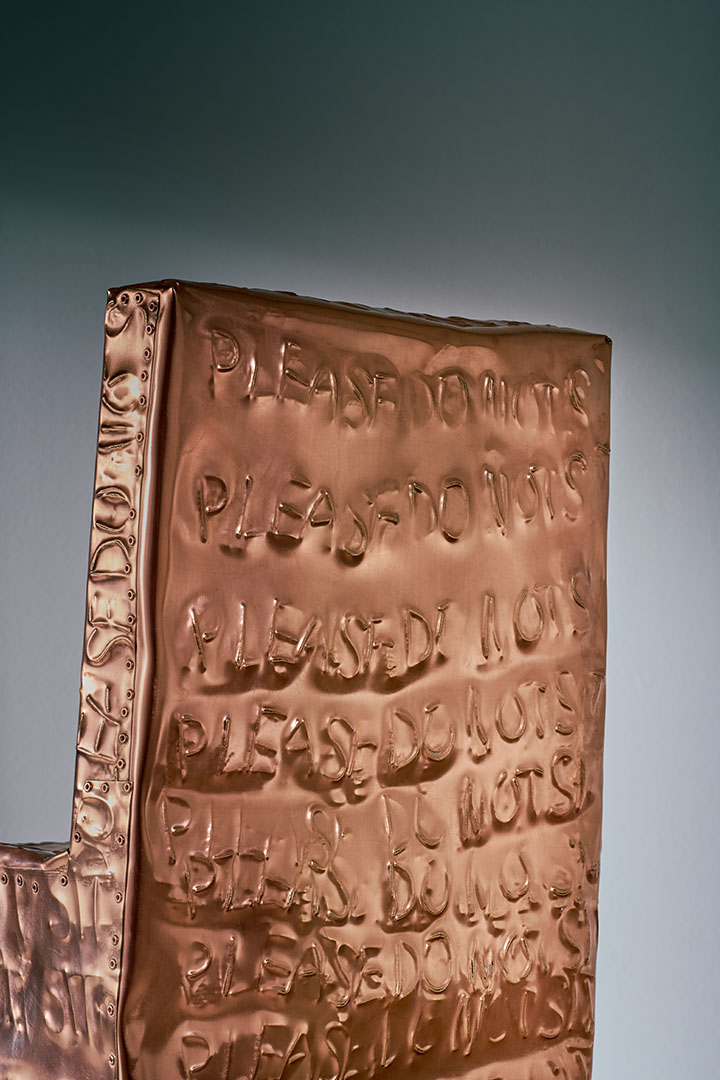 PLEASE DO NOT S
PLEASE DO NOT S
PLEASE DO NOT S
PLEASE DO NOT S
PLEASE DO NOT SI
PLEASE DO NOT S
PLEASE DO NOT SI
PLEASE DO NOT SI